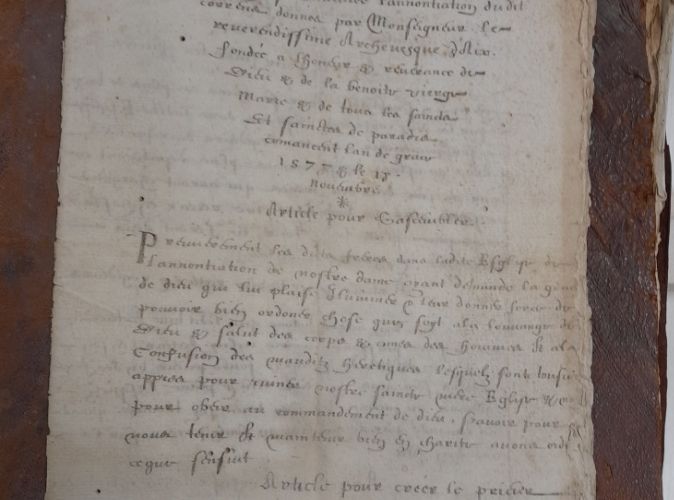 lannontiation du dit
correns donnes par Monseigneur le
reverendissime Archevesque d'Aix.
fondée a lhoneur & reverance de
Dieu & de la benoite vierge
Marie & de tous les saincts
Et sainctes de paradis
comancent lan de grace
& le
novembre
Article pour sasembler.
Premierement les dits freres dans ladite Esglise de
lannontiation de nostre dame ayant demandé la grace
de dieu qui luy plaise Iluminer & leur donner force de
pouvoir bien ordoner chose quy soyt a la louange de
Dieu & salut des corps & ames des houmes & a la
Confusion des mauditz heretiques lesquelz sont tousiours
apprets pour ruiner nostre saincte mere Esglise &
pour obeir au commandement de dieu, scavoir pour
nous tenir & maintenir bien en charite avons
ce que sensuit
Article pour créer le prieur